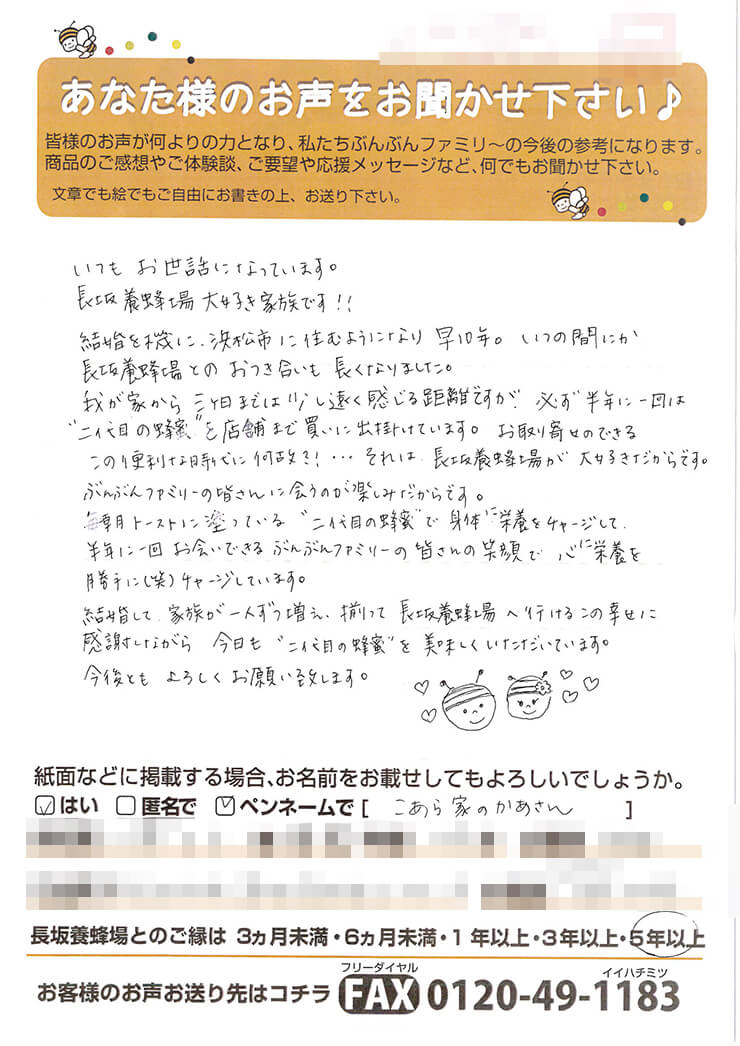 あなた様のお声をお聞かせ下さい♪
皆様のお声が何よりの力となり、私たちぶんぶんファミリ～の今後の参考になります。
商品のご感想やご体験談、ご要望や応援メッセージなど、何でもお聞かせ下さい。
文章でも絵でもご自由にお書きの上、お送り下さい。
いつも お世話になっています。
長坂養蜂場 大好き家族です!!
結婚を機に、浜松市に住むようになり 早10年。いつの間にか
長坂養蜂場との おつき合いも 長くなりました。
我が家から 三ヶ日までは 少し遠く感じる距離ですが、必ず 半年に一回は
"二代目の蜂蜜"を店舗まで 買いに出掛けています。お取り寄せのできる
この便利な時代に何故?!…それは、長坂養蜂場が 大好きだからです。
ぶんぶんファミリーの皆さんに会うのが楽しみだからです。
毎朝トーストに塗っている "二代目の蜂蜜"で 身体に栄養をチャージして、
半年に一回 お会いできる ぶんぶんファミリーの皆さんの笑顔で 心に栄養を
勝手に(笑)チャージしています。
結婚して、家族が一人ずつ増え、揃って 長坂養蜂場へ行けるこの幸せに
感謝しながら 今日も "二代目の蜂蜜"を 美味しくいただいています。
今後とも よろしくお願い致します。
紙面などに掲載する場合、お名前をお載せしてもよろしいでしょうか。
☑はい □匿名で ☑ペンネームで [ こあら家のかあさん ]
長坂養蜂場とのご縁は 3ヵ月未満・6ヵ月未満・1年以上・3年以上・5年以上
フリーダイヤル イイハチミツ
お客様のお声お送り先はコチラ FAX 0120-49-1183